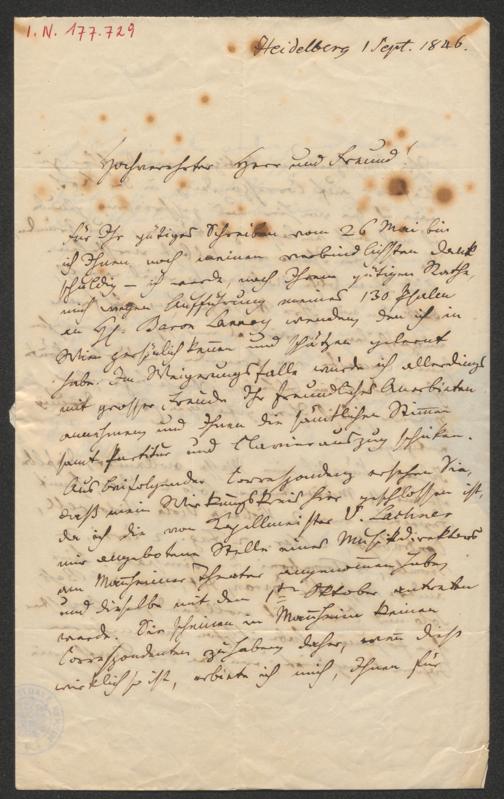 I.N. 177.729
Heidelberg 1 Sept. 1846.
Hochverehrter Herr und Freund!
Für Ihr gütiges Schreiben vom 26 Mai bin
ich Ihnen noch meinen verbindlichsten Dank
schuldig – ich werde, nach Ihrem gütigen Rathe,
mich wegen Aufführung meines 130 Psalm
an H. Baron Lannoy wenden, den ich in
Wien persönlich kennen und schätzen gelernt
habe. Im Weigerungsfalle würde ich allerdings
mit grosser Freude Ihr freundliches Anerbieten
annehmen und Ihnen die sämtlichen Stimmen
samt Partitur und Clavierauszug schicken.
Aus beifolgender Correspondenz ersehen Sie,
daß mein Wirkungskreis hier geschlossen ist,
da ich die von Kapellmeister V. Lachner
mir angebotene Stelle eines Musikdirektors
am Mannheimer Theater angenommen habe,
und dieselbe mit dem 1ten Oktober antreten
werde. Sie scheinen in Mannheim keinen
Correspondenten zu haben, daher, wenn dieß
wirklich so ist, erbiete ich mich, Ihnen für